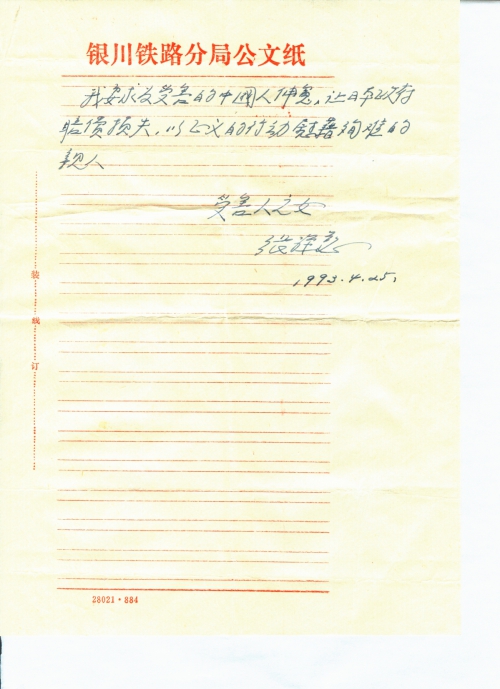 银川铁路分局公文纸
我要求为受害的中國人伸冤，让日本政府
赔偿损失，以正义的行动慰藉殉难的
亲人
受害人之女
张
1993.4.25.
装
线
订
28021·884